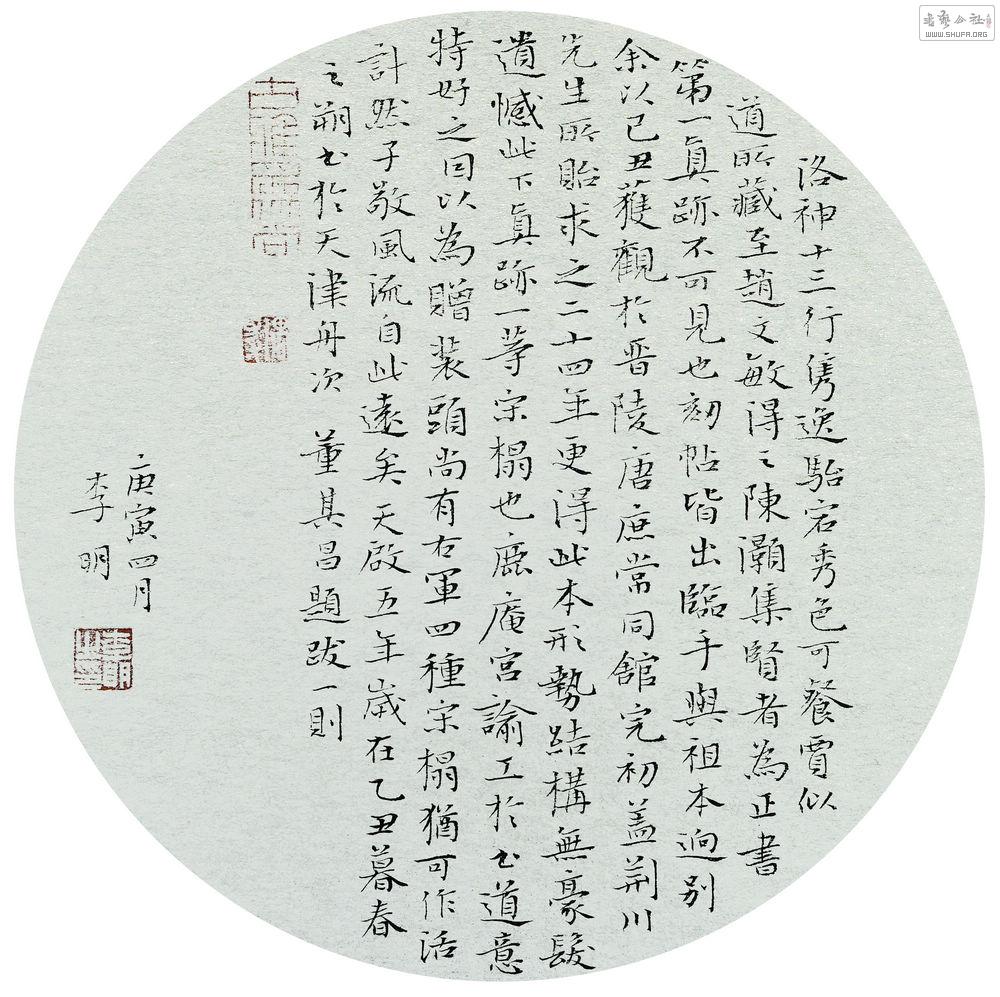 洛神十三行雋逸駘宕秀色可餐賈似
道所藏至趙文敏得之陳灝集賢者為正書
第一真跡不可見也刻帖皆出臨手與祖本迥別
余以己丑獲觀於晉陵唐庶常同館完初蓋荊川
先生所貽求之二十四年更得此本形勢結構無豪髮
遺憾此下真跡一等宋榻也鹿庵宮諭工於書道意
特好之因以為贈裝頭尚有右軍四種宋榻猶可作活
計然子敬風流自此遠矣天啟五年歲在乙丑暮春
之朔書於天津舟次 董其昌題跋一則
庚寅四月
李明
書藝公社
WWW.SHUFA.ORG